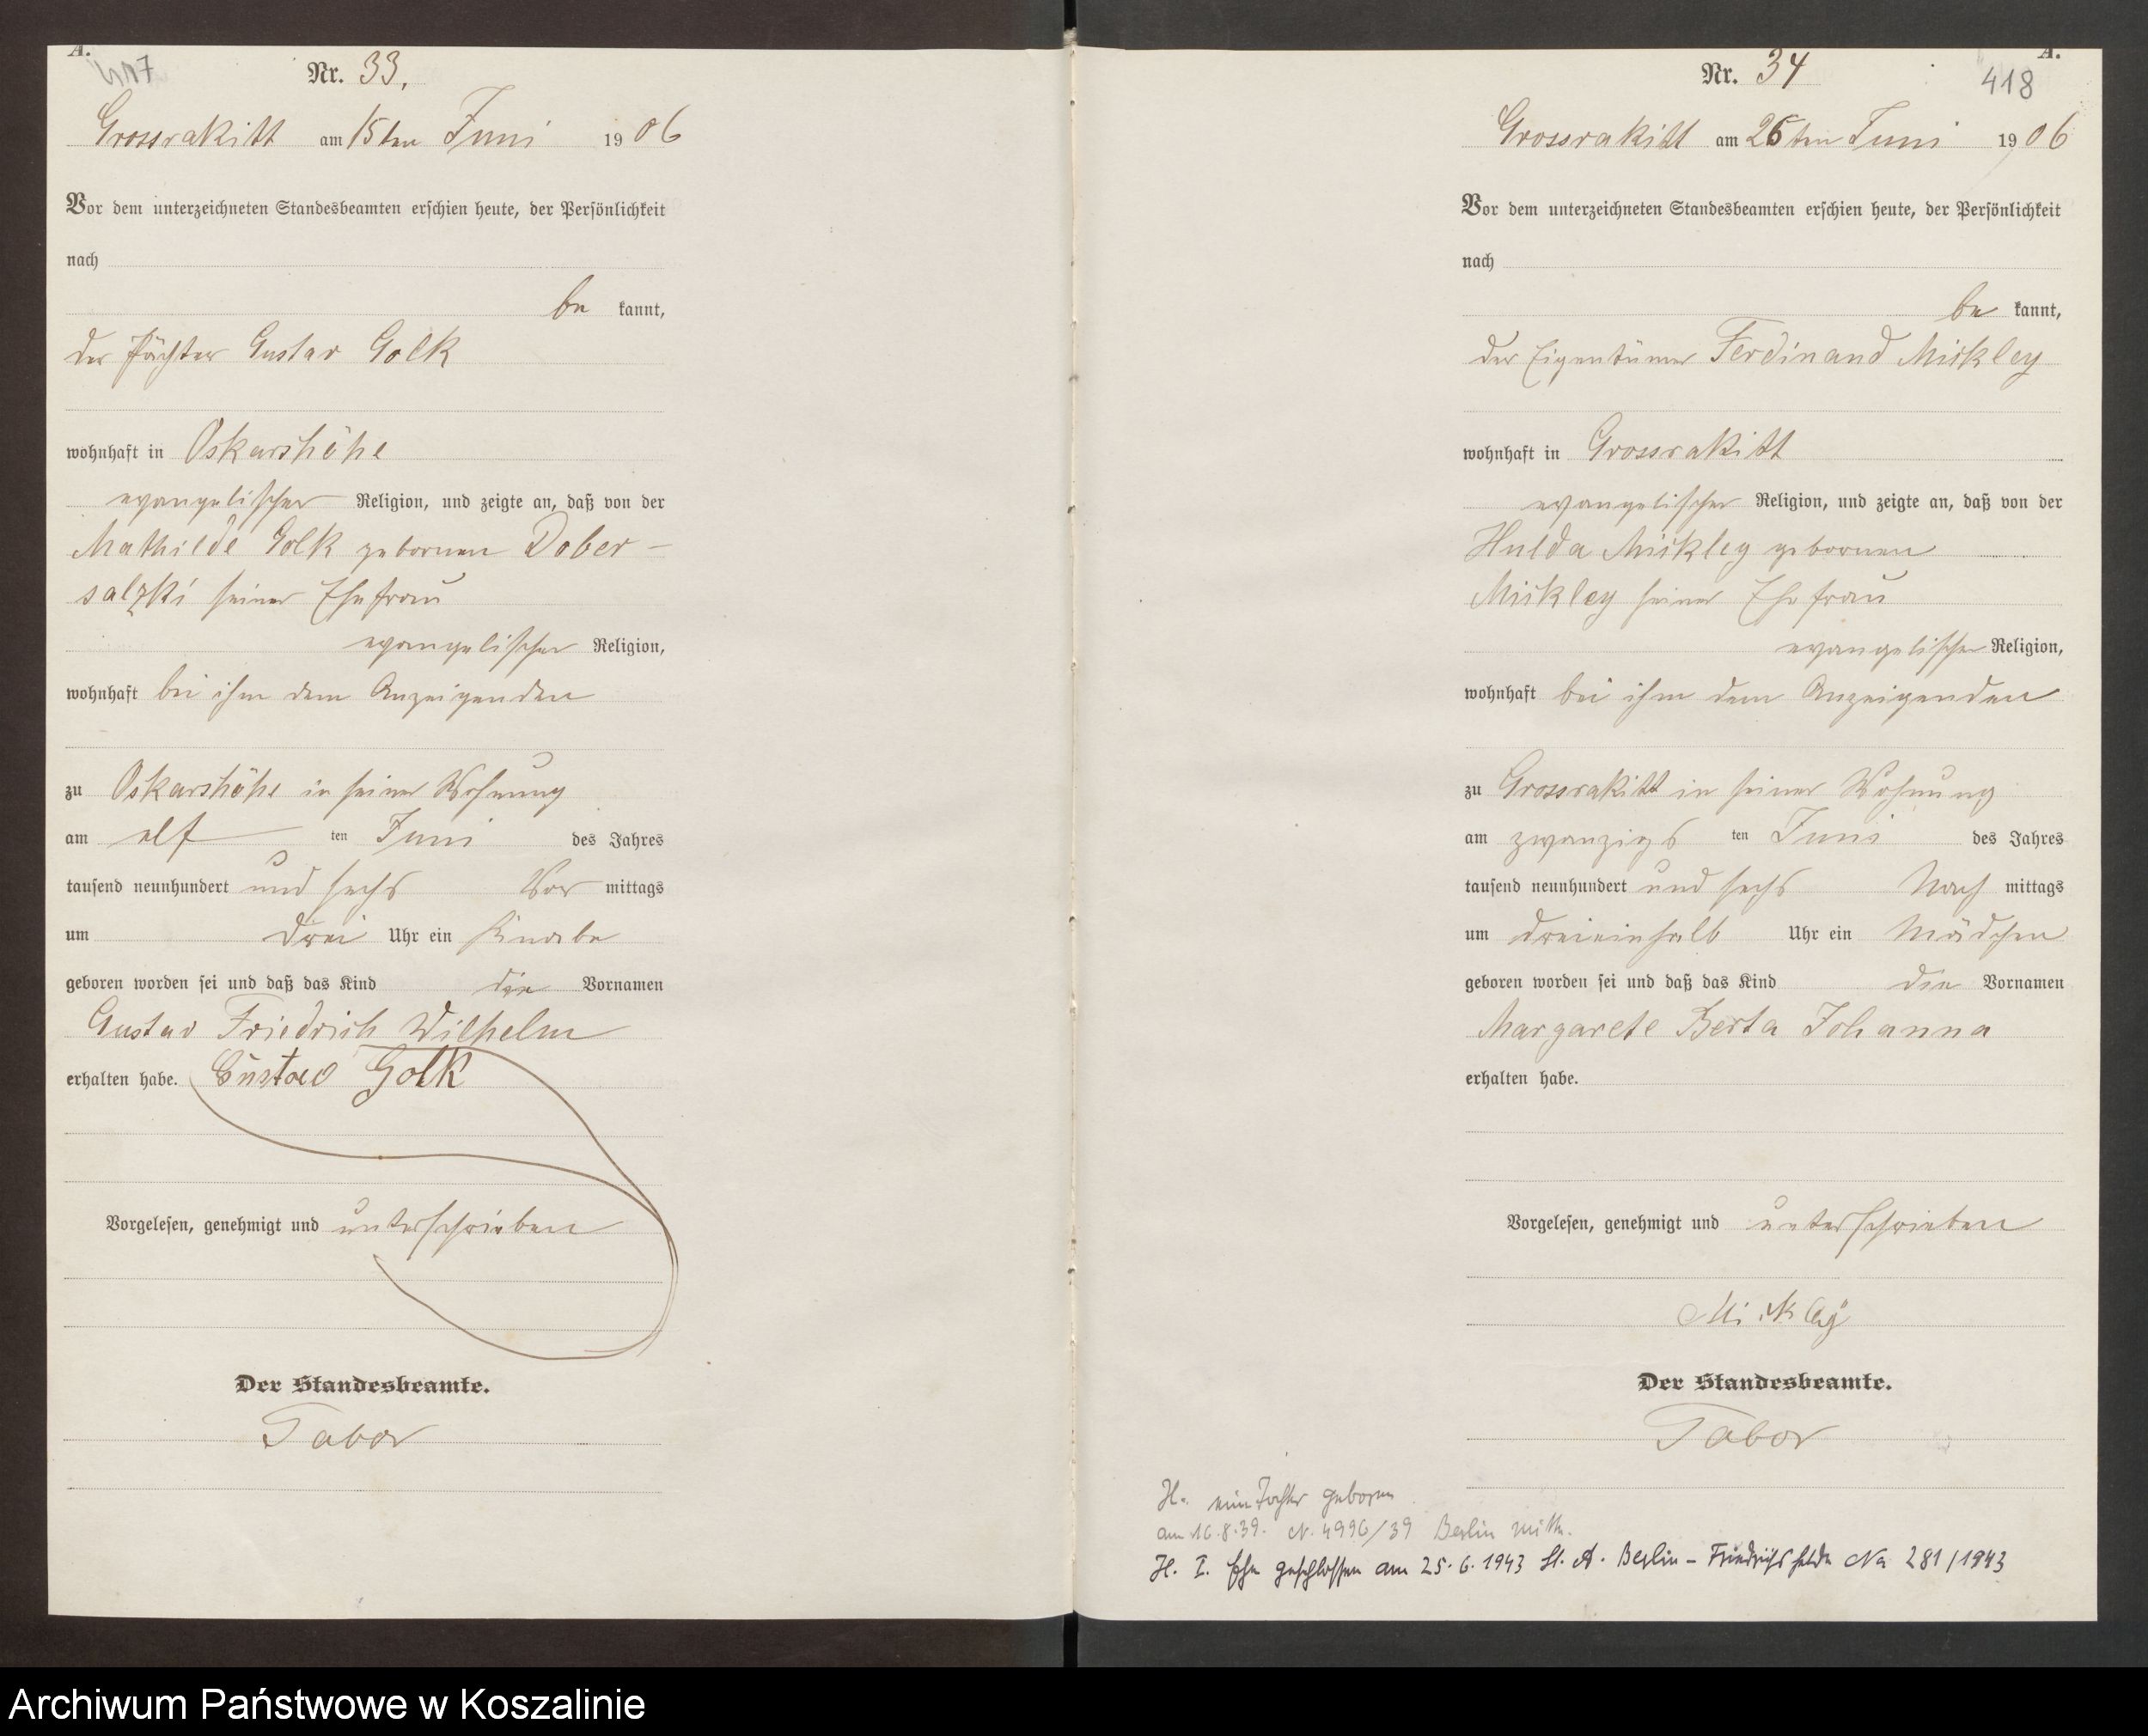 A.
417
Nr. 33.
Grossrakitt am 15ten Juni 1906
Vor dem unterzeichneten Standesbeamten erschien heute, der Persönlichkeit
nach
be kannt,
der Pächter Gustav Golk
wohnhaft in Oskarshöhe
evangelischer Religion, und zeigte an, daß von der
Mathilde Golk gebornen Dober-
salzki seiner Ehefrau
evangelischer Religion,
wohnhaft bei ihm dem Anzeigenden
zu Oskarshöhe in seiner Wohnung
am elf ten Juni des Jahres
tausend neunhundert und sechs Vor mittags
um drei Uhr ein Knabe
geboren worden sei und daß das Kind die Vornamen
Gustav Friedrich Wilhelm
erhalten habe. Gustav Golk
Vorgelesen, genehmigt und unterschrieben
Der Standesbeamte.
Tabor
A.
418
Nr. 34
Grossrakitt am 26ten Juni 1906
Vor dem unterzeichneten Standesbeamten erschien heute, der Persönlichkeit
nach
be kannt,
der Eigentümer Ferdinand Mickley
wohnhaft in Grossrakitt
evangelischer Religion, und zeigte an, daß von der
Hulda Mickley gebornen
Mickley seiner Ehefrau
evangelischer Religion,
wohnhaft bei ihm dem Anzeigenden
zu Grossrakitt in seiner Wohnung
am zwanzigs ten Juni des Jahres
tausend neunhundert und sechs Nach mittags
um dreieinhalb Uhr ein Mädchen
geboren worden sei und daß das Kind die Vornamen
Margarete Berta Johanna
erhalten habe.
Vorgelesen, genehmigt und unterschrieben
Mickley
Der Standesbeamte.
Tabor
H. eine Tochter geboren
am 16.8.39. N. 4996/39 Berlin Mitte.
H. I. Ehe geschlossen am 25.6.1943 St. A. Berlin-Friedrichsfelde Nr. 281/1943
Archiwum Państwowe w Koszalinie